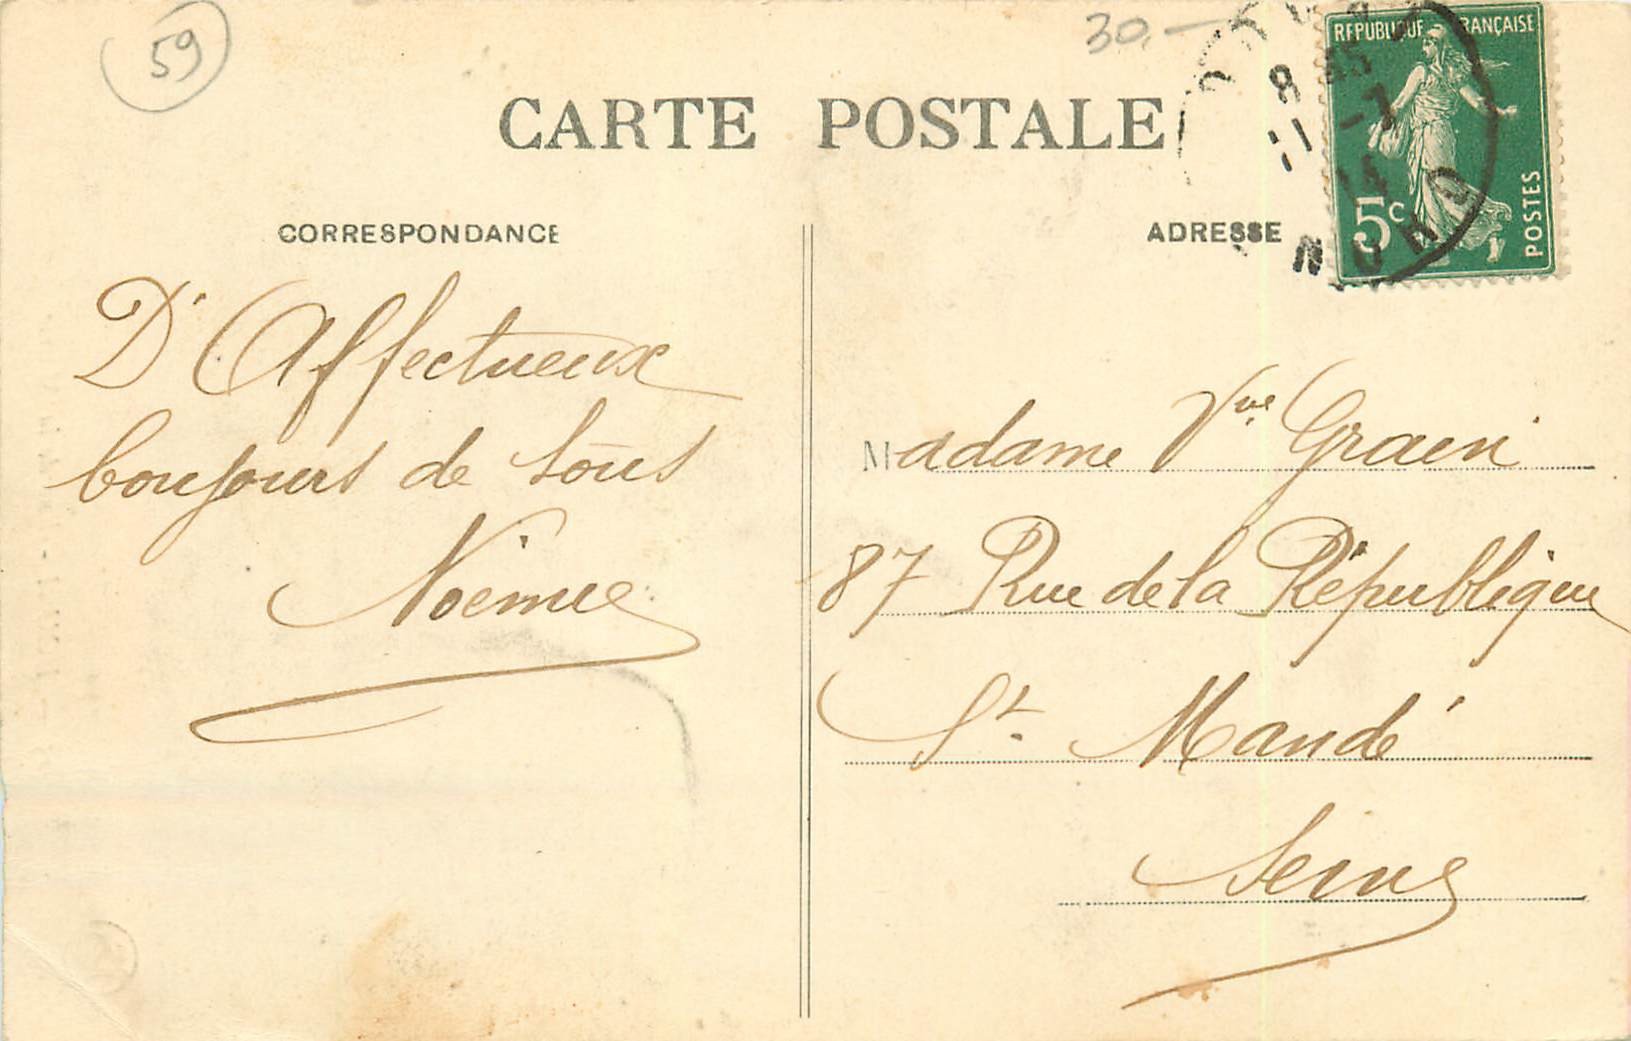 59
30.-
CARTE POSTALE
RÉPUBLIQUE FRANÇAISE
5c
POSTES
8
11 -7
14
NORD
CORRESPONDANCE
ADRESSE
D'Affectueux
bonjours de tous
Noémie
Madame Vve Graen
87 Rue de la République
St. Mandé
Seine